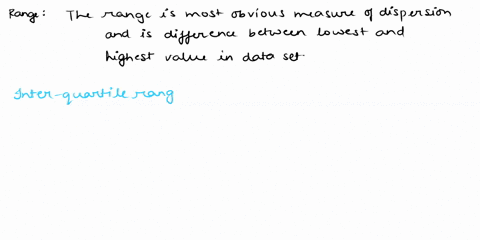 Range: The range is most obvious measure of dispersion
and is difference between lowest and
highest value in data set
Inter-quartile rang